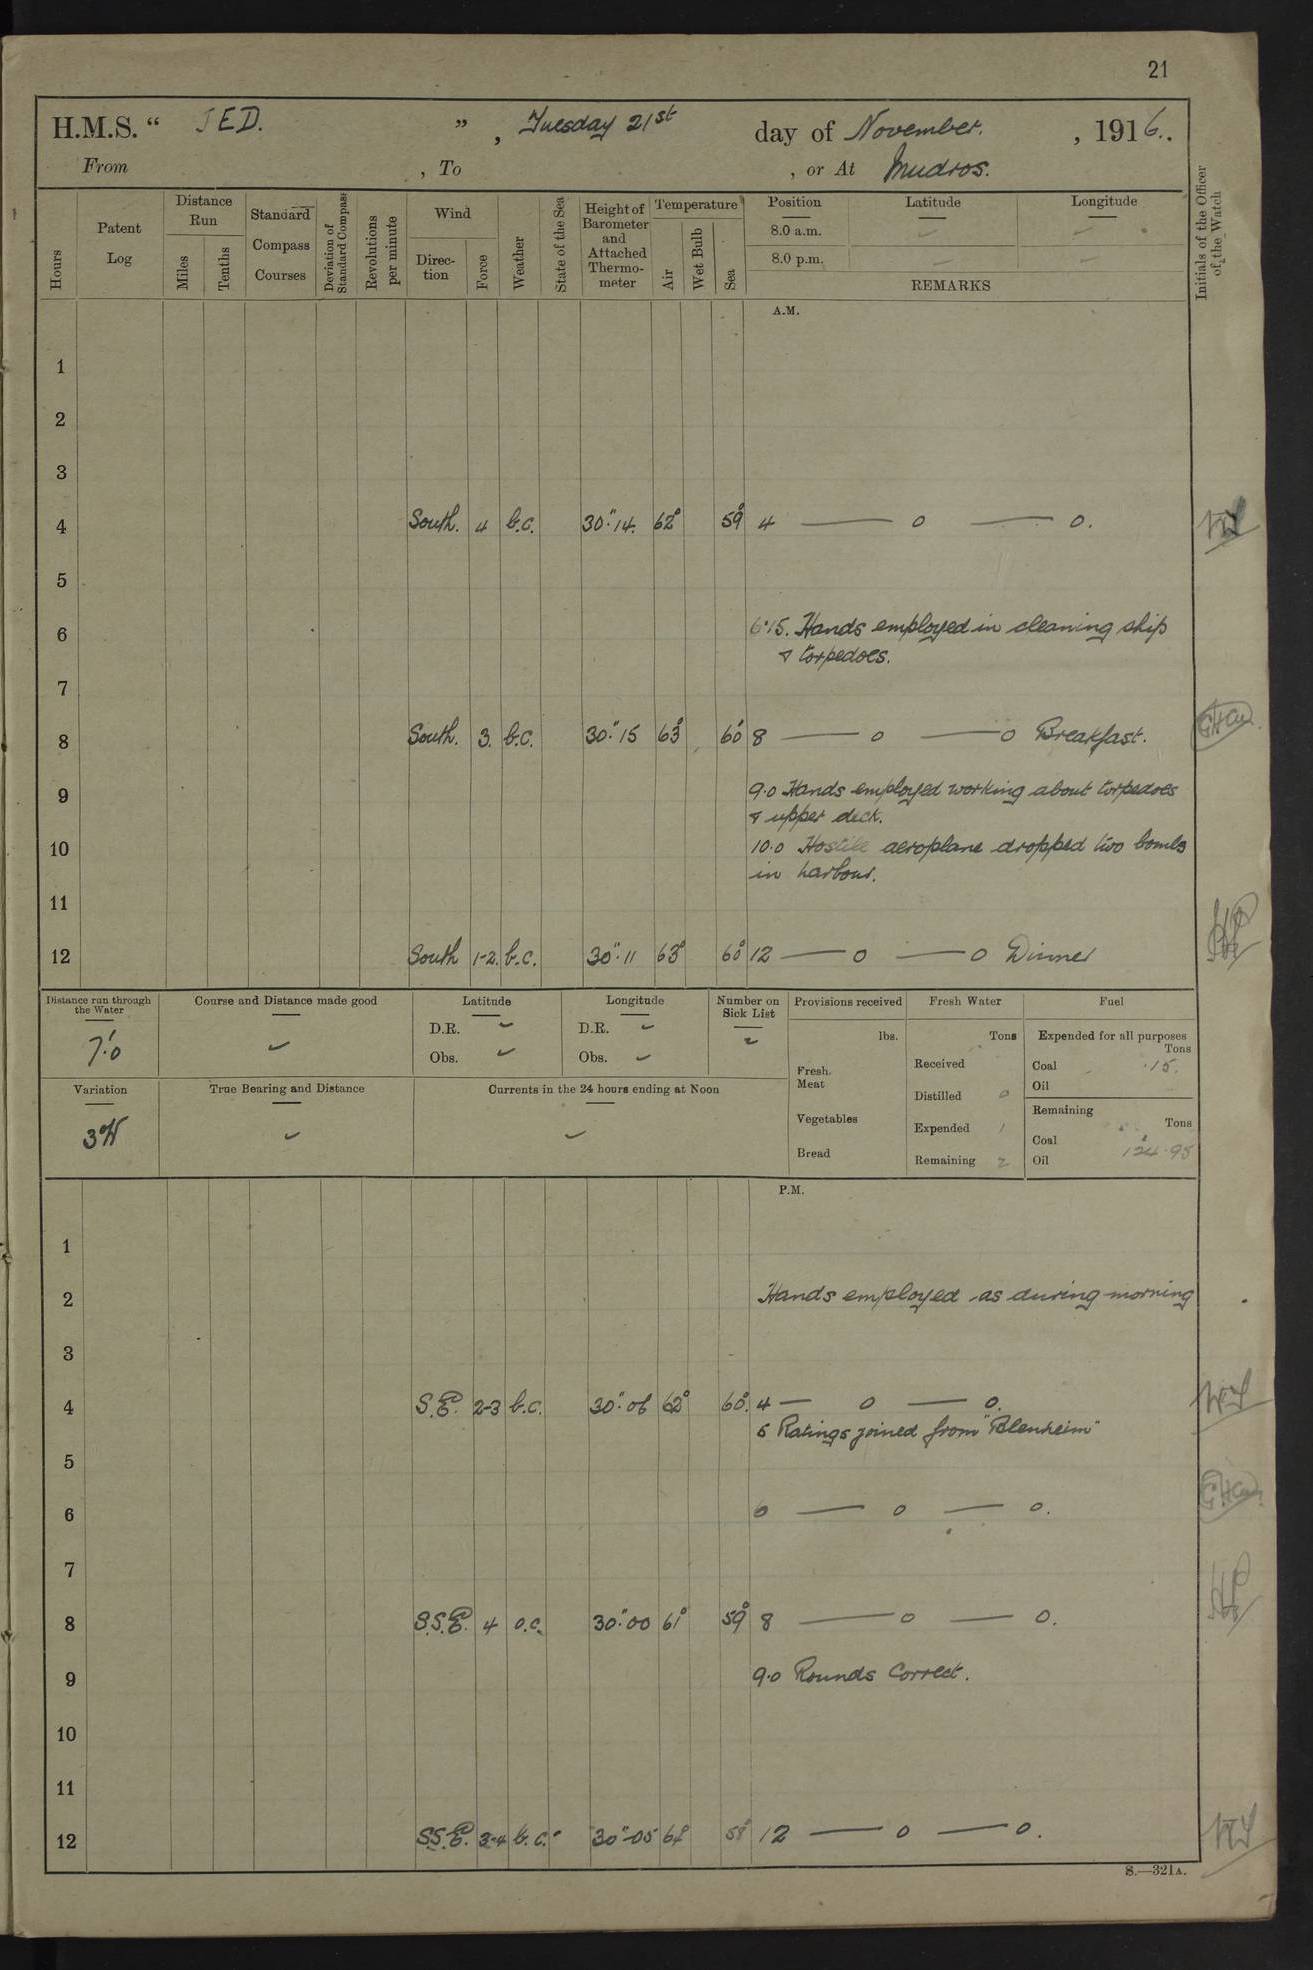 21
H.M.S. “ JED. ” , Tuesday 21st day of November. , 1916..
From , To , or At Mudros.
Hours
Patent Log
Distance Run
Miles
Tenths
Standard Compass Courses
Deviation of Standard Compass
Revolutions per minute
Wind
Direction
Force
Weather
State of the Sea
Height of Barometer and Attached Thermometer
Temperature
Air
Wet Bulb
Sea
Position Latitude Longitude
8.0 a.m.
8.0 p.m.
REMARKS
Initials of the Officer of the Watch
A.M.
1
2
3
4 South. 4 b.c. 30".14. 62° 59° 4 — o — o.
5
6 6.15. Hands employed in cleaning ship
& torpedoes.
7
8 South. 3. b.c. 30".15 63° 60° 8 — o — o Breakfast.
9 9.0 Hands employed working about torpedoes
& upper deck.
10 10.0 Hostile aeroplane dropped two bombs
in harbour.
11
12 South 1-2. b.c. 30".11 63° 60° 12 — o — o Dinner
Distance run through the Water
7.'0
Course and Distance made good
Latitude
D.R.
Obs.
Longitude
D.R.
Obs.
Number on Sick List
Variation
3°W
True Bearing and Distance
Currents in the 24 hours ending at Noon
Provisions received
lbs.
Fresh Meat
Vegetables
Bread
Fresh Water
Tons
Received
Distilled 0
Expended 1
Remaining 2
Fuel
Expended for all purposes
Tons
Coal .15.
Oil
Remaining
Tons
Coal 124.95
Oil
P.M.
1
2 Hands employed as during morning
3
4 S.E. 2-3 b.c. 30".06 62° 60°. 4 — o — o.
5 Ratings joined from "Blenheim"
5
6 6 — o — o.
7
8 S.S.E. 4 o.c. 30".00 61° 59° 8 — o — o.
9 9.0 Rounds Correct.
10
11
12 S.S.E. 3-4 b.c. 30".05 58° 12 — o — o.
S.—321A.